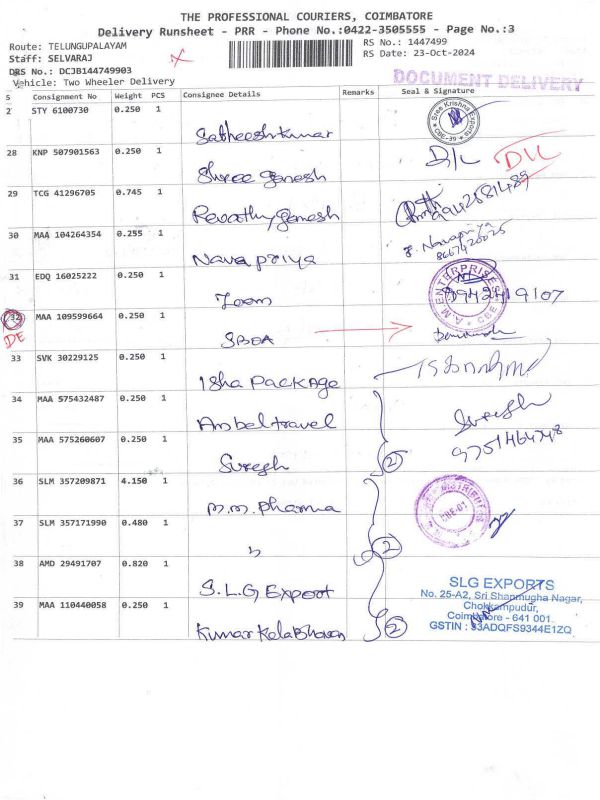 THE PROFESSIONAL COURIERS, COIMBATORE
Delivery Runsheet - PRR - Phone No.:0422-3505555 - Page No.:3
Route: TELUNGUPALAYAM
RS No.: 1447499
Staff: SELVARAJ
RS Date: 23-Oct-2024
DRS No.: DCJB144749903
Vehicle: Two Wheeler Delivery
DOCUMENT DELIVERY
S Consignment No Weight PCS Consignee Details Remarks Seal & Signature
2 STY 6100730 0.250 1
Satheeshkumar
Sree Krishna Exports
CBE-39
28 KNP 507901563 0.250 1
Shree Ganesh
D/L D/L
29 TCG 41296705 0.745 1
Revathy Ganesh
30 MAA 104264354 0.255 1
Navapriya
J. Navapriya
8667420025
31 EDQ 16025222 0.250 1
Zoom
A.M. ENTERPRISES
CBE
32 MAA 109599664 0.250 1
DE
SBOA
33 SVK 30229125 0.250 1
Isha Package
34 MAA 575432487 0.250 1
Anbeltravel
Suresh
35 MAA 575260607 0.250 1
Suresh
2
9751464748
36 SLM 357209871 4.150 1
M.M. Pharma
37 SLM 357171990 0.480 1
2
38 AMD 29491707 0.820 1
S.L.G Export
39 MAA 110440058 0.250 1
Kumar Kalabhavan
2
SLG EXPORTS
No. 25-A2, Sri Shanmugha Nagar,
Chokkampudur,
Coimbatore - 641 001.
GSTIN : 33ADQFS9344E1ZQ